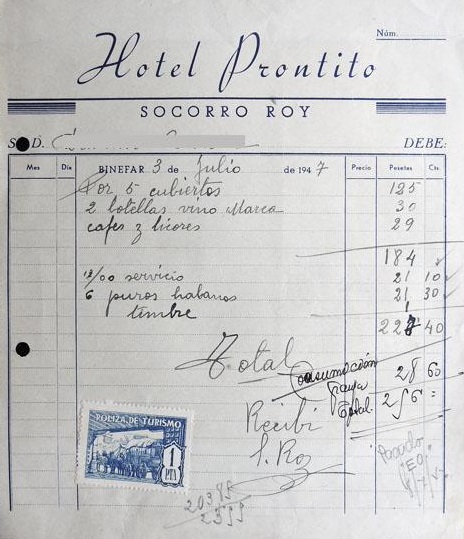 Núm.
Hotel Prontito
SOCORRO ROY
S D. DEBE:
Mes Día BINEFAR 3 de Julio de 1947 Precio Pesetas Cts.
Por 5 cubiertos 125
2 botellas vino Marca 30
cafes y licores 29
184
12/00 servicio 21 10
6 puros habanos 21 30
timbre 1
227 40
Total
Consumición 28 60
Total. 256 =
Recibí
S. Roy
POLIZA DE TURISMO
1
PTA
Pagado
8/7/
20385
2399